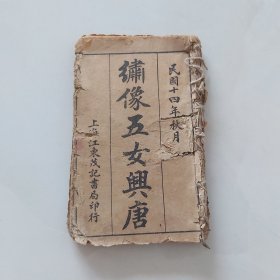 民國十四年秋月
繡像五女興唐
上海江東茂記書局印行